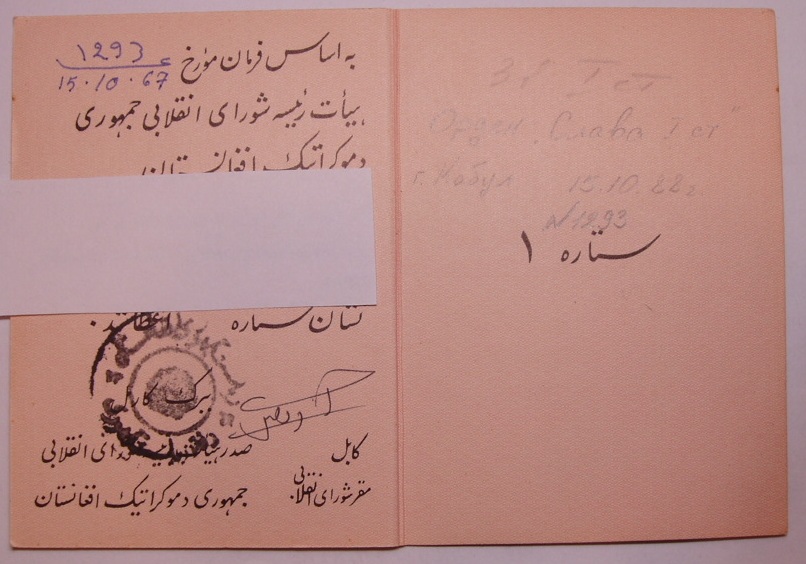 به اساس فرمان مؤرخ ۱۲۹۳
15.10.67
هیأت رئیسه شورای انقلابی جمهوری
دموکراتیک افغانستان
نشان ستاره اعطا شد.
ببرک کارمل
کابل
صدر هیأت رئیسه شورای انقلابی
مقر شورای انقلابی
جمهوری دموکراتیک افغانستان
Зв I ст
Орден "Слава I ст"
г. Кабул 15.10.88г.
№1293
ستاره ۱